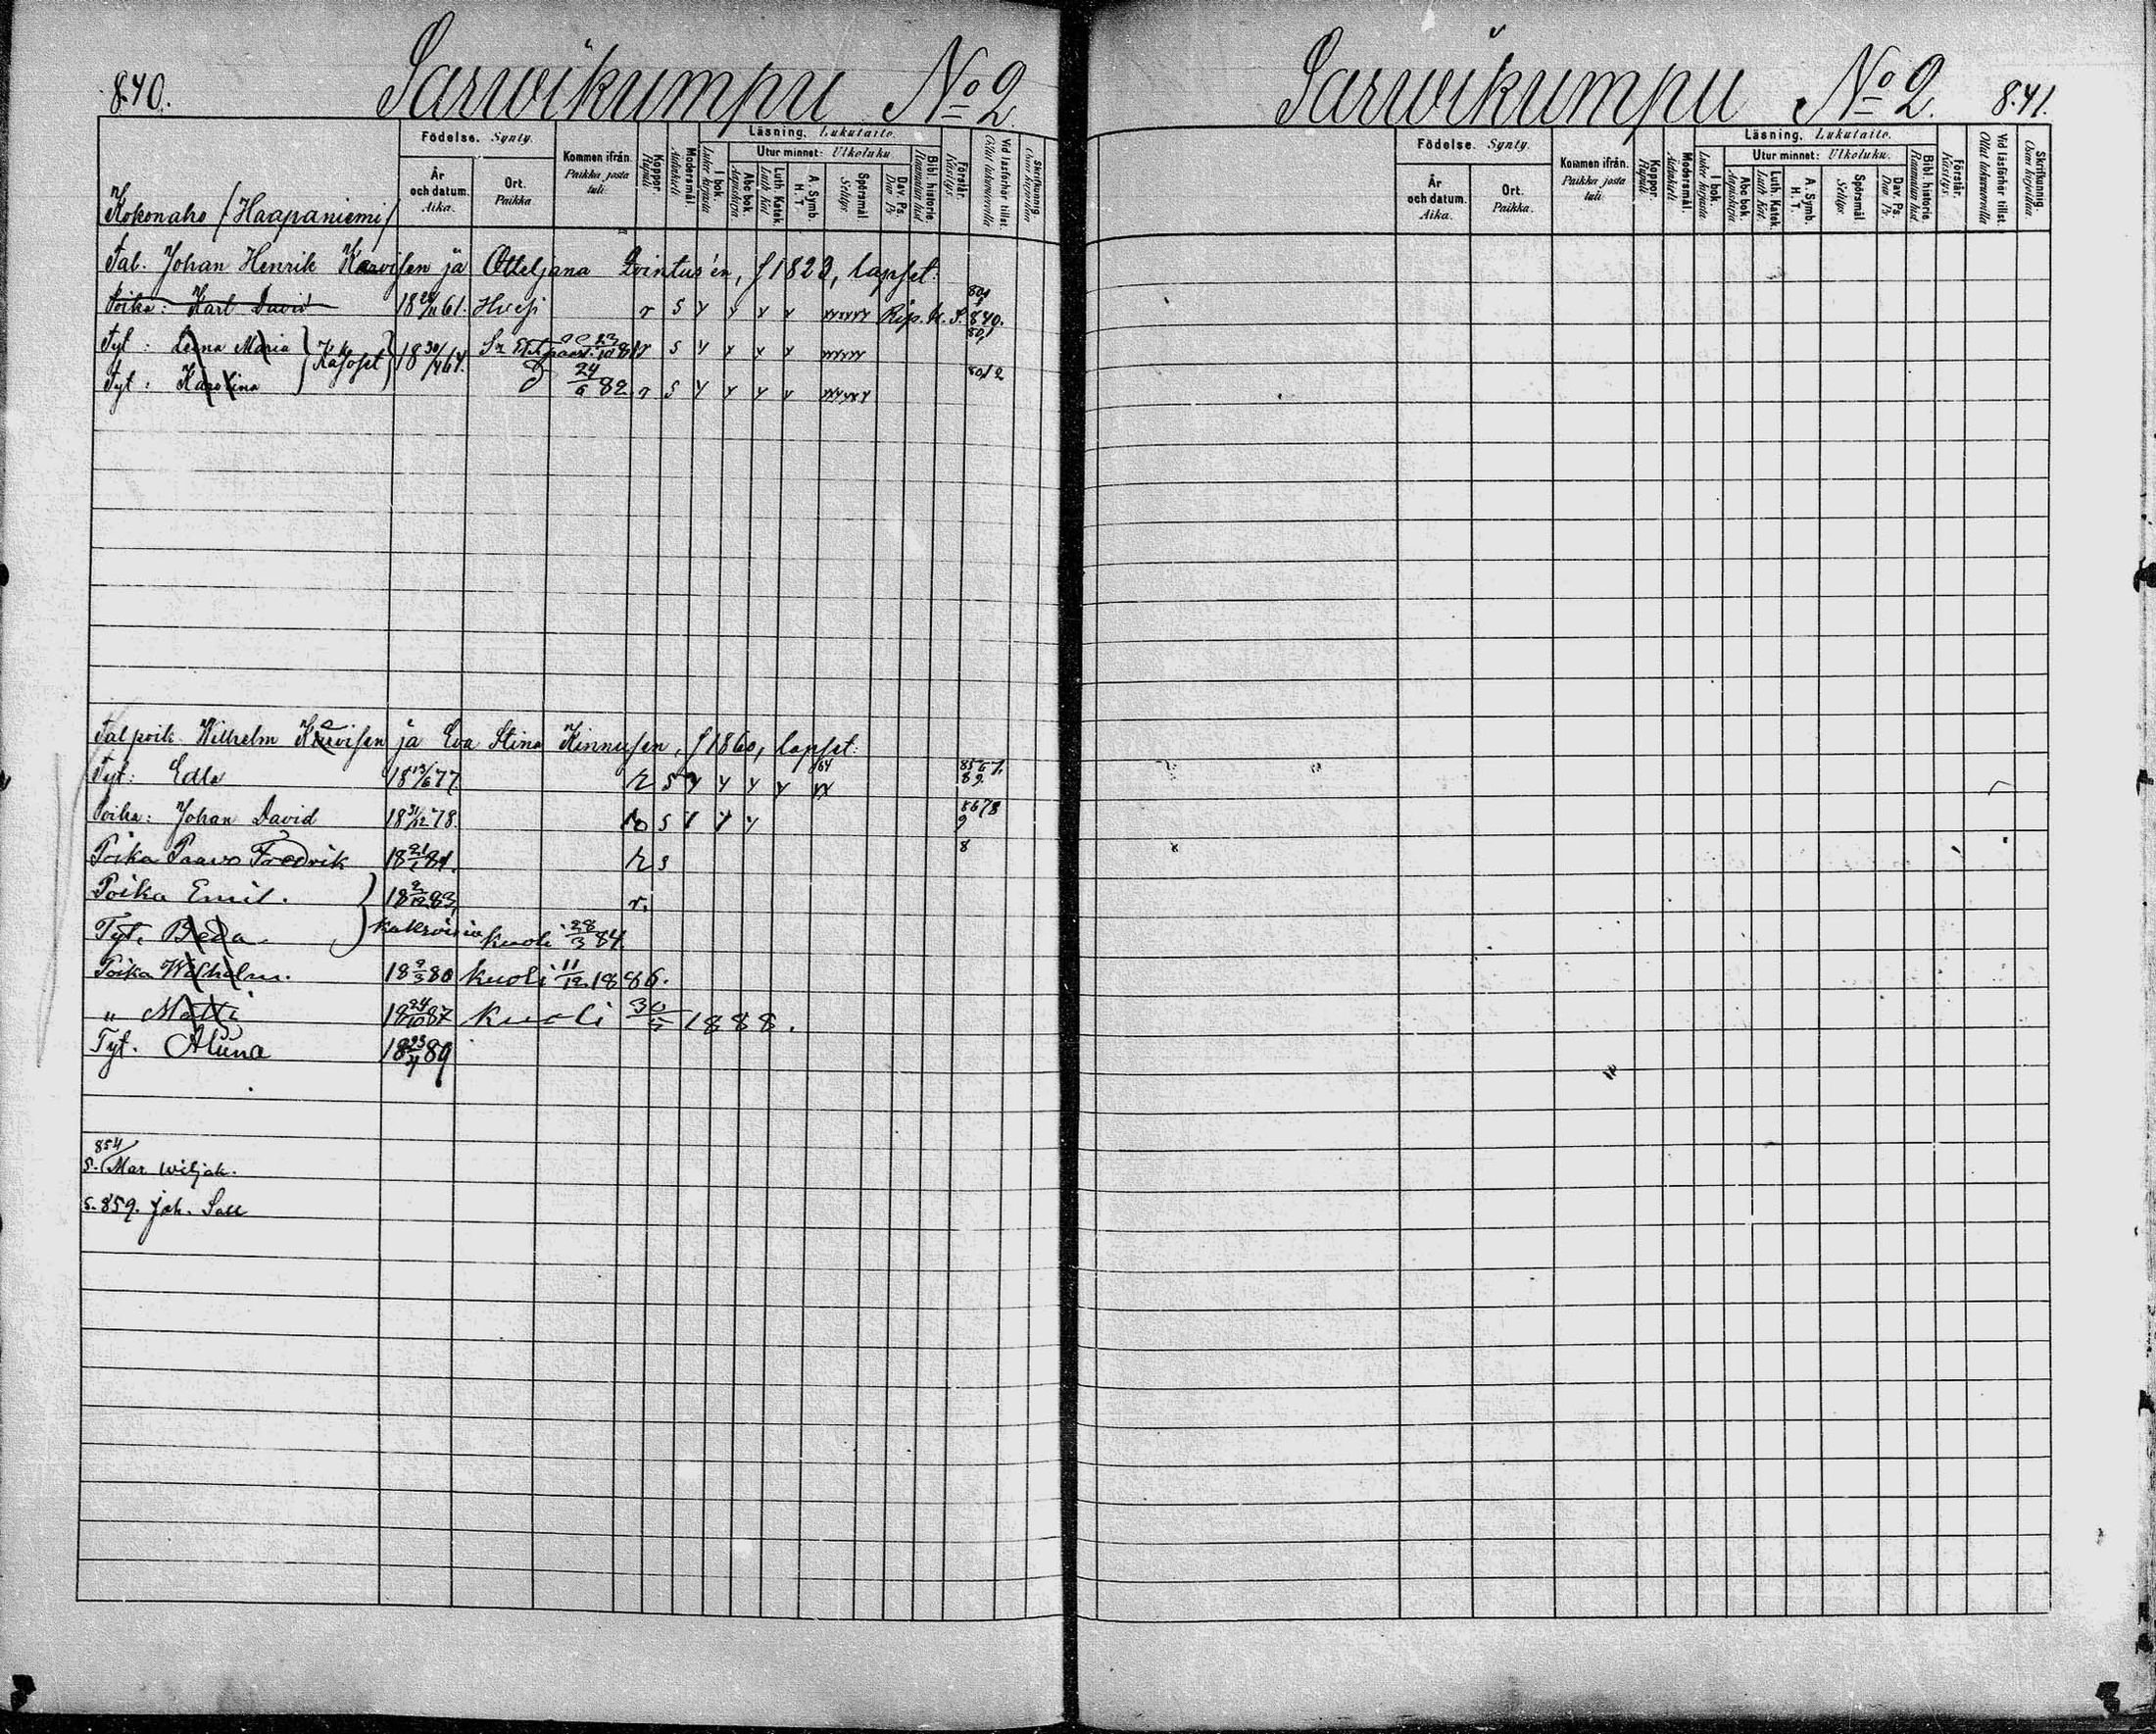 840.
Sarwikumpu No 2.
Födelse. Synty.
Kommen ifrån.
Paikka josta tuli.
Koppor. Rupuli
Modersmål. Äidinkieli
Läsning. Lukutaito.
I bok. Lukee kirjasta
Utur minnet: Ulkoluku.
Abc bok. Aapiskirja
Luth. Katek. Luth. Kat.
A. Symb. H. T.
Spörsmål Selitys
Dav. Ps. Dav. Ps.
Bibl. historie. Raamatun hist.
Förstår. Käsitys.
Vid läsförhör tillst. Ollut lukuvuorolla
Skrifkunning. Osaa kirjoittaa
År och datum. Aika.
Ort. Paikka
Kokonaho / Haapaniemi /
Tal. Johan Henrik Karvisen ja Otteljana Qvintus'en, f 1823, lapset:
Poika: Karl David 18 61. r s Rip. 840.
Tyt: Leena Maria Kaksoset 18 30/4 64. s
Tyt: Karolina 24/6 82. r s
Tal. poik. Wilhelm Karvisen ja Eva Stina Kinnusen, f 1860, lapset:
Tyt: Edla 18 13/6 77. r s
Poika: Johan David 18 31/12 78. s
Poika Paavo Fredrik 18 21/1 81. r s 8
Poika Emil. 18 83 r.
Tyt. Beda. kaksoisia kuoli 28/3 84.
Poika Wilhelm. 18 9/3 80 kuoli 11/12 1886.
" Matti 18 24/10 87 kuoli 30/5 1888.
Tyt. Alina 18 23/4 89
854
s. Mar. wiljak.
s. 859. Joh. Sall
Sarwikumpu No 2.
841.
Födelse. Synty.
Kommen ifrån.
Paikka josta tuli
Koppor. Rupuli
Modersmål. Äidinkieli
Läsning. Lukutaito.
I bok. Lukee kirjasta
Utur minnet: Ulkoluku.
Abc bok. Aapiskirja
Luth. Katek. Luth. Kat.
A. Symb. H. T.
Spörsmål Selitys
Dav. Ps. Dav. Ps.
Bibl. historie. Raamatun hist.
Förstår. Käsitys.
Vid läsförhör tillst. Ollut lukuvuorolla
Skrifkunning. Osaa kirjoittaa.
År och datum. Aika.
Ort. Paikka.